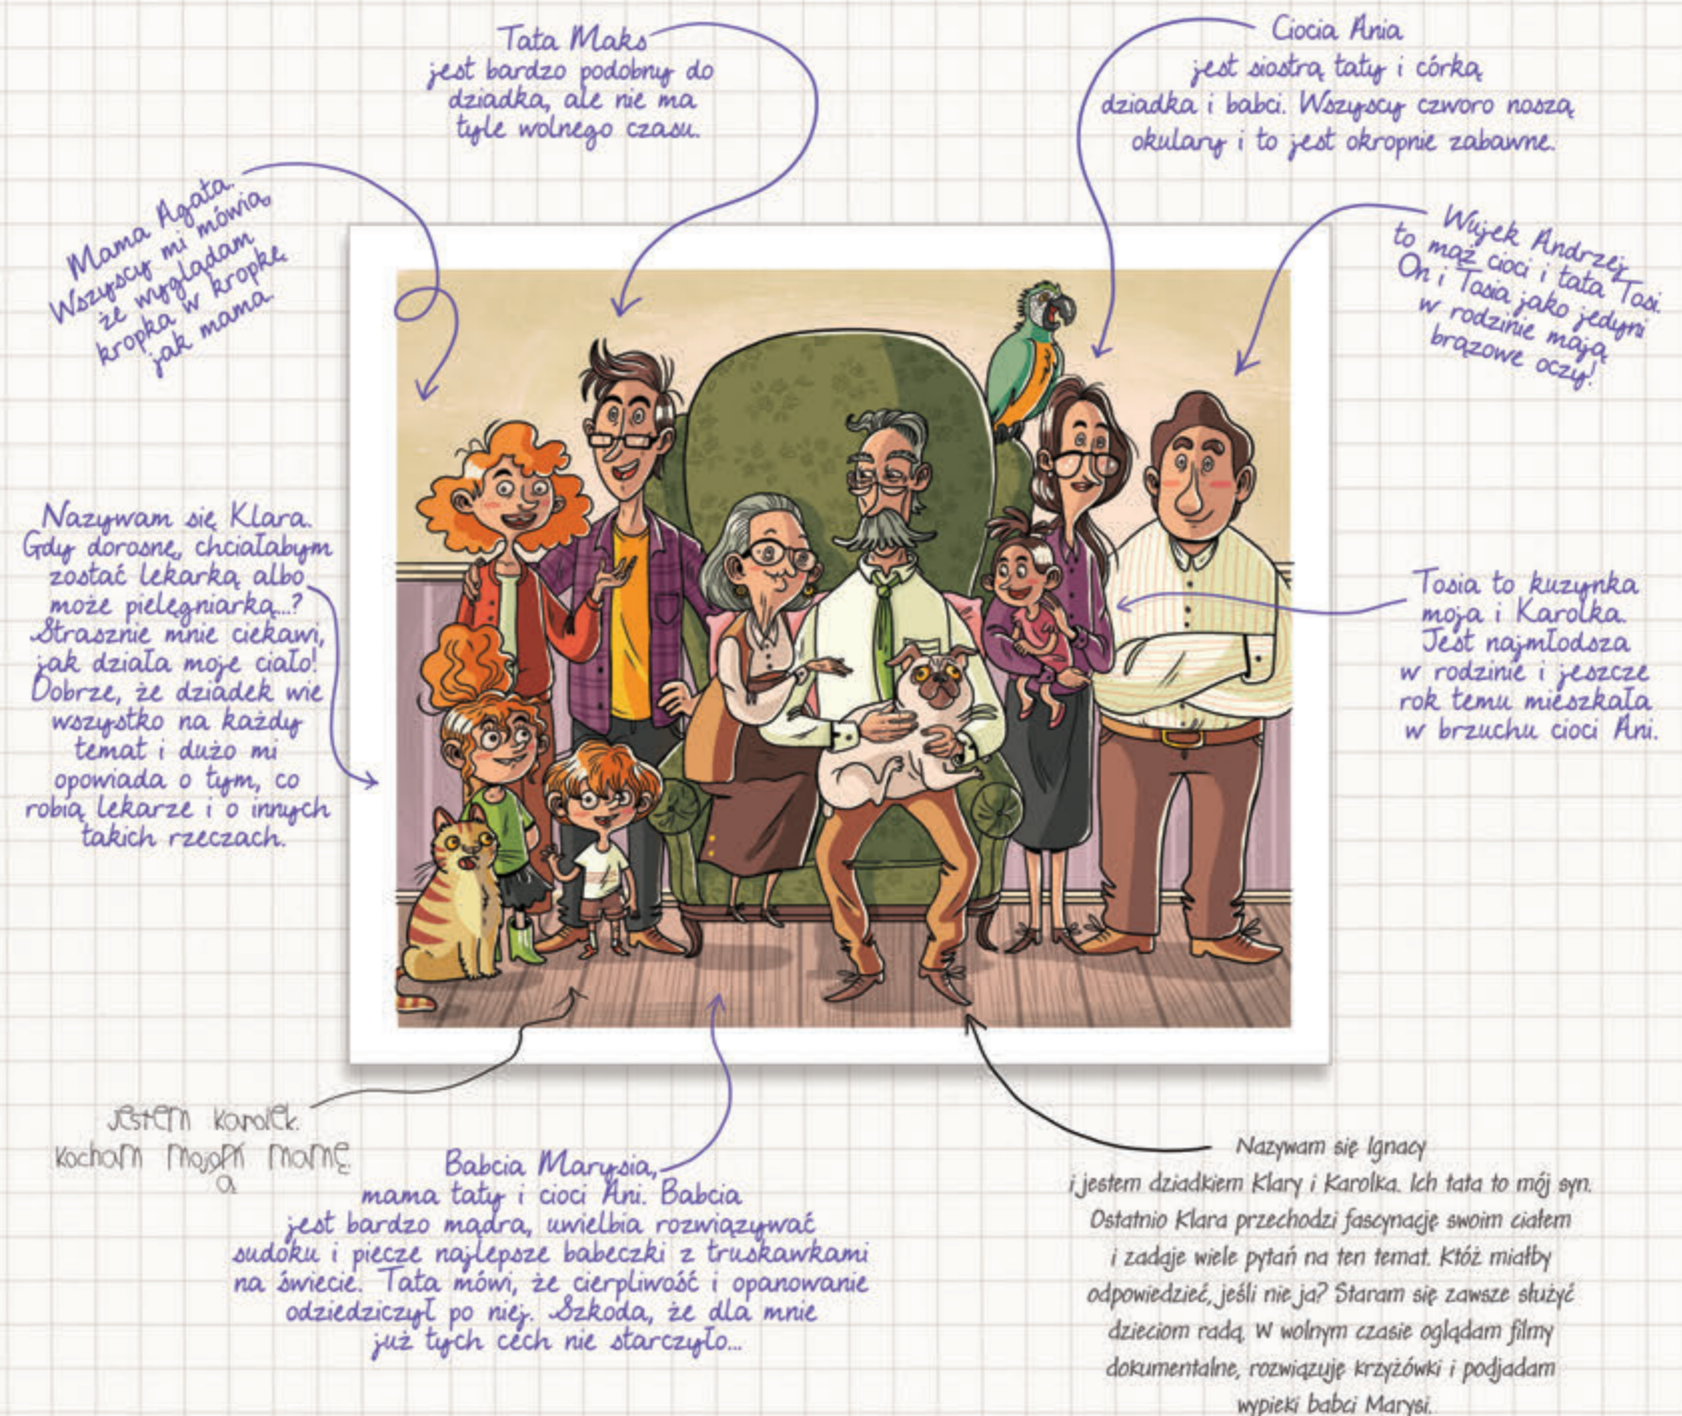 Tata Maks
jest bardzo podobny do
dziadka, ale nie ma
tyle wolnego czasu.
Ciocia Ania
jest siostrą taty i córką
dziadka i babci. Wszyscy czworo noszą
okulary i to jest okropnie zabawne.
Mama Agata.
Wszyscy mi mówią,
że wyglądam
kropka w kropkę
jak mama.
Wujek Andrzej
to mąż cioci i tata Tosi.
On i Tosia jako jedyni
w rodzinie mają
brązowe oczy!
Nazywam się Klara.
Gdy dorosnę, chciałabym
zostać lekarką albo
może pielęgniarką...?
Strasznie mnie ciekawi,
jak działa moje ciało!
Dobrze, że dziadek wie
wszystko na każdy
temat i dużo mi
opowiada o tym, co
robią lekarze i o innych
takich rzeczach.
Tosia to kuzynka
moja i Karolka.
Jest najmłodsza
w rodzinie i jeszcze
rok temu mieszkała
w brzuchu cioci Ani.
Jestem Karolek.
Kocham mojom mamę
ą
Babcia Marysia,
mama taty i cioci Ani. Babcia
jest bardzo mądra, uwielbia rozwiązywać
sudoku i piecze najlepsze babeczki z truskawkami
na świecie. Tata mówi, że cierpliwość i opanowanie
odziedziczył po niej. Szkoda, że dla mnie
już tych cech nie starczyło...
Nazywam się Ignacy
i jestem dziadkiem Klary i Karolka. Ich tata to mój syn.
Ostatnio Klara przechodzi fascynację swoim ciałem
i zadaje wiele pytań na ten temat. Któż miałby
odpowiedzieć, jeśli nie ja? Staram się zawsze służyć
dzieciom radą. W wolnym czasie oglądam filmy
dokumentalne, rozwiązuję krzyżówki i podjadam
wypieki babci Marysi.